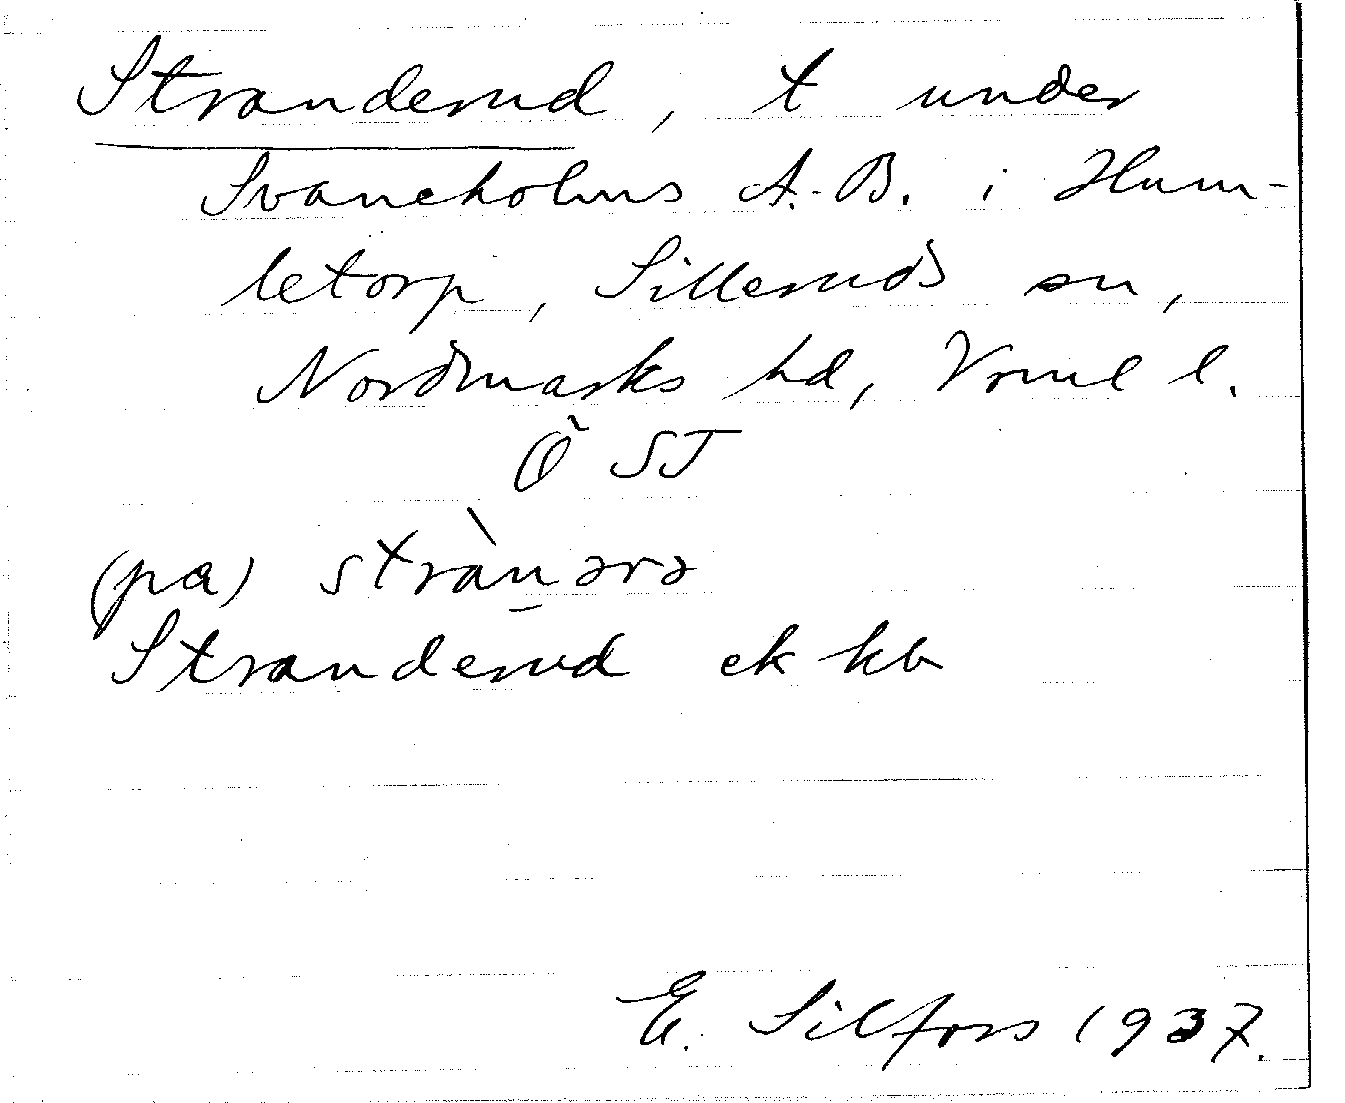 Stranderud, t under
Svaneholms A.-B. i Hum-
letorp, Silleruds sn,
Nordmarks hd, Vrml l.
Ö ST
(pa) stràn̠ərə
Stranderud ek kb
E. Silfors 1937.